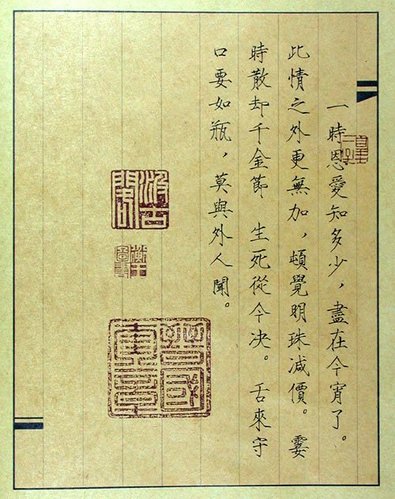 一時恩愛知多少，盡在今宵了。
此情之外更無加，頓覺明珠減價。霎
時散却千金節 生死從今决。舌來守
口要如瓶，莫與外人聞。